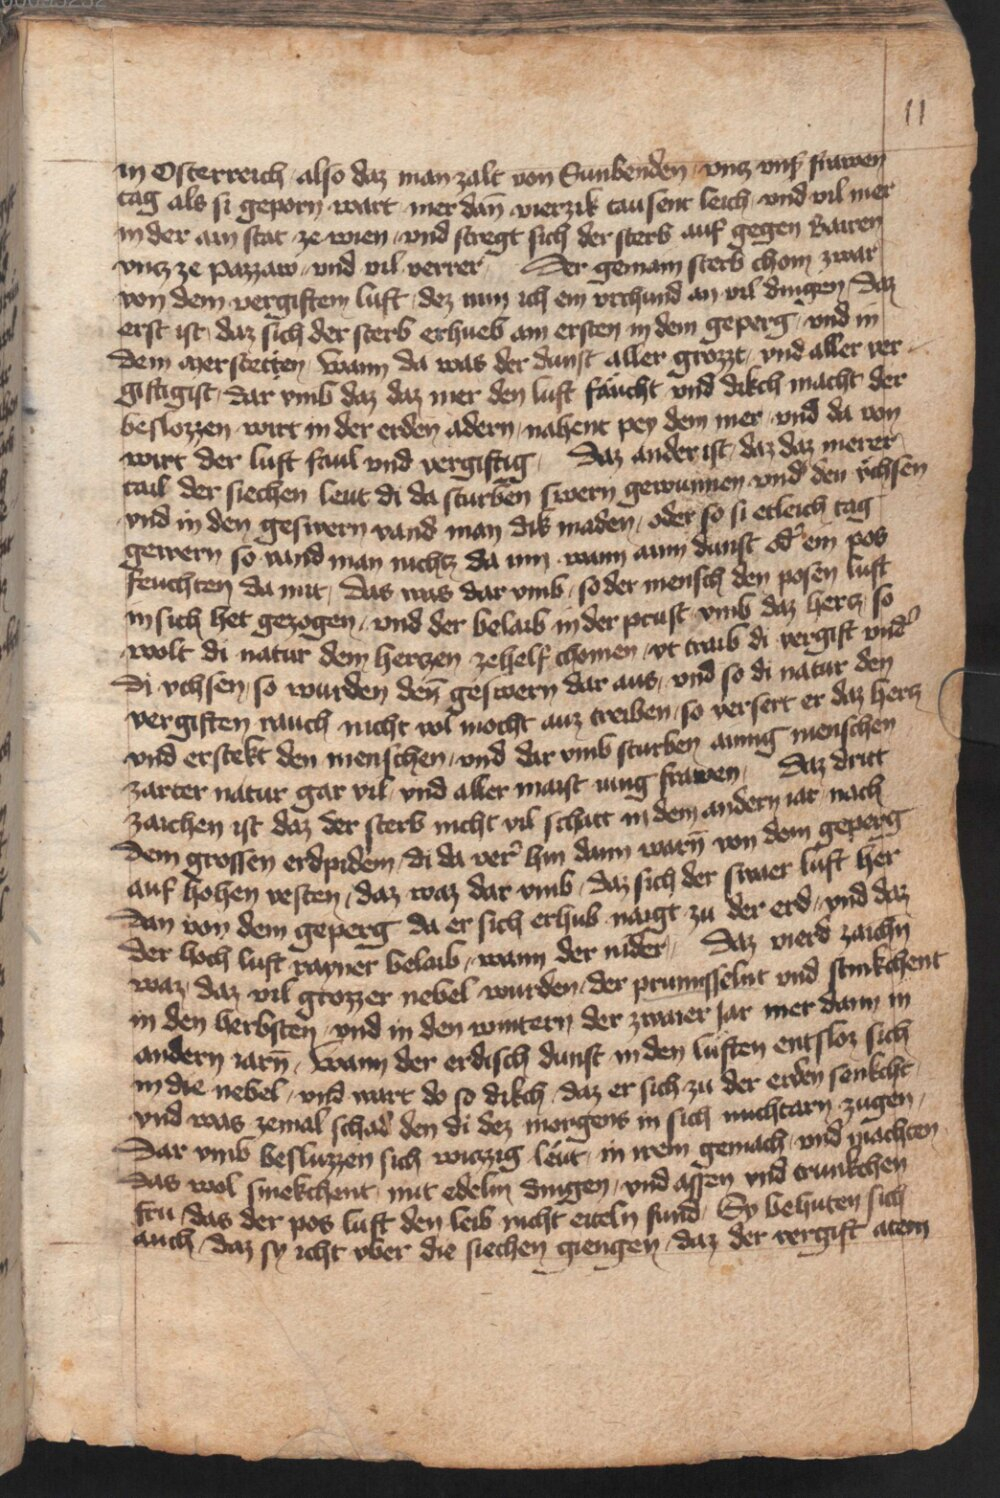 11
in Osterreich / also daz man zalt von Sunbenden / vnz vnß frawen
tag als si geporn wart mer dan̄ vierzik tausent leich / vnd vil mer
in der ain stat ze wien / vnd stregt sich der sterb auf gegen Bairen
vncz ze pazzaw / vnd vil verrer Der gemain sterb chom zwar
von dem vergiftem luft / dez nim ich ein vrchund an vil dingen / Daz
erst ist / daz sich der sterb erhueb am ersten in dem geperg / vnd in
dem merstetten / wann da was der dunst aller grozzt / vnd aller ver
giftigist / dar vmb daz daz mer den luft faucht vnd dikch macht der
beslozzen wirt in der erden adern / nahent pey dem mer / vnd da von
wirt der luft faul vnd vergiftig / Daz ander ist / daz daz merer
tail der siechen leut di da sturben swern gewunnen vnd̾ den vchsen
vnd in den geswern vand man dik maden / oder so si etleich tag
gewern so vand man nichtz da inn wann ainn dunst od̾ ein pos
feuchten da mit / das was dar vmb / so der mensch den posen luft
in sich het gezogen / vnd der belaib in der prust vmb daz hercz / so
wolt di natur dem herczen zehelf chomen / vt traib di vergift vnd̾
di vchsen / so wurden den̄ geswern dar aus / vnd so di natur den
vergiften rauch nicht wol mocht auz treiben / so versert er daz hercz
vnd erstekt den menschen / vnd dar vmb sturben ainig menschen
zarter natur gar vil / vnd aller maist iung frawen / Daz dritt
zaichen ist daz der sterb nicht vil schatt in dem andern iar / nach
dem grossen erdpidem / di da ver̾ hin dann warn̄ von dem geperg
auf hohen vesten / daz waz dar vmb / daz sich der swaer luft her
dan von dem geperg da er sich erhub naigt zu der erd / vnd daz
der hoch luft rayner belaib / wann der nider / Daz vierd zaichn̄
waz / daz vil grozzer nebel wurden / der prunisselnt vnd stinkchent
in den herbsten / vnd in den wintern der zwaier Jar mer dann in
andern iarn̄ / wann der erdisch dunst in den luften entsloz sich
in die nebel / vnd wart do so dikch / daz er sich zu der erden senkcht
vnd was zemal schad̾ den di dez morgens in sich nuchtarn zugen /
Dar vmb besluzzen sich wiczig leut in irem gemach / vnd machten
das wol smekchent mit edeln dingen / vnd assen vnd trunkchen
fru / das der pos luft den leib nicht eiteln fund / Sy behuten sich
auch / daz sy icht vber die siechen giengen / daz der vergift atem